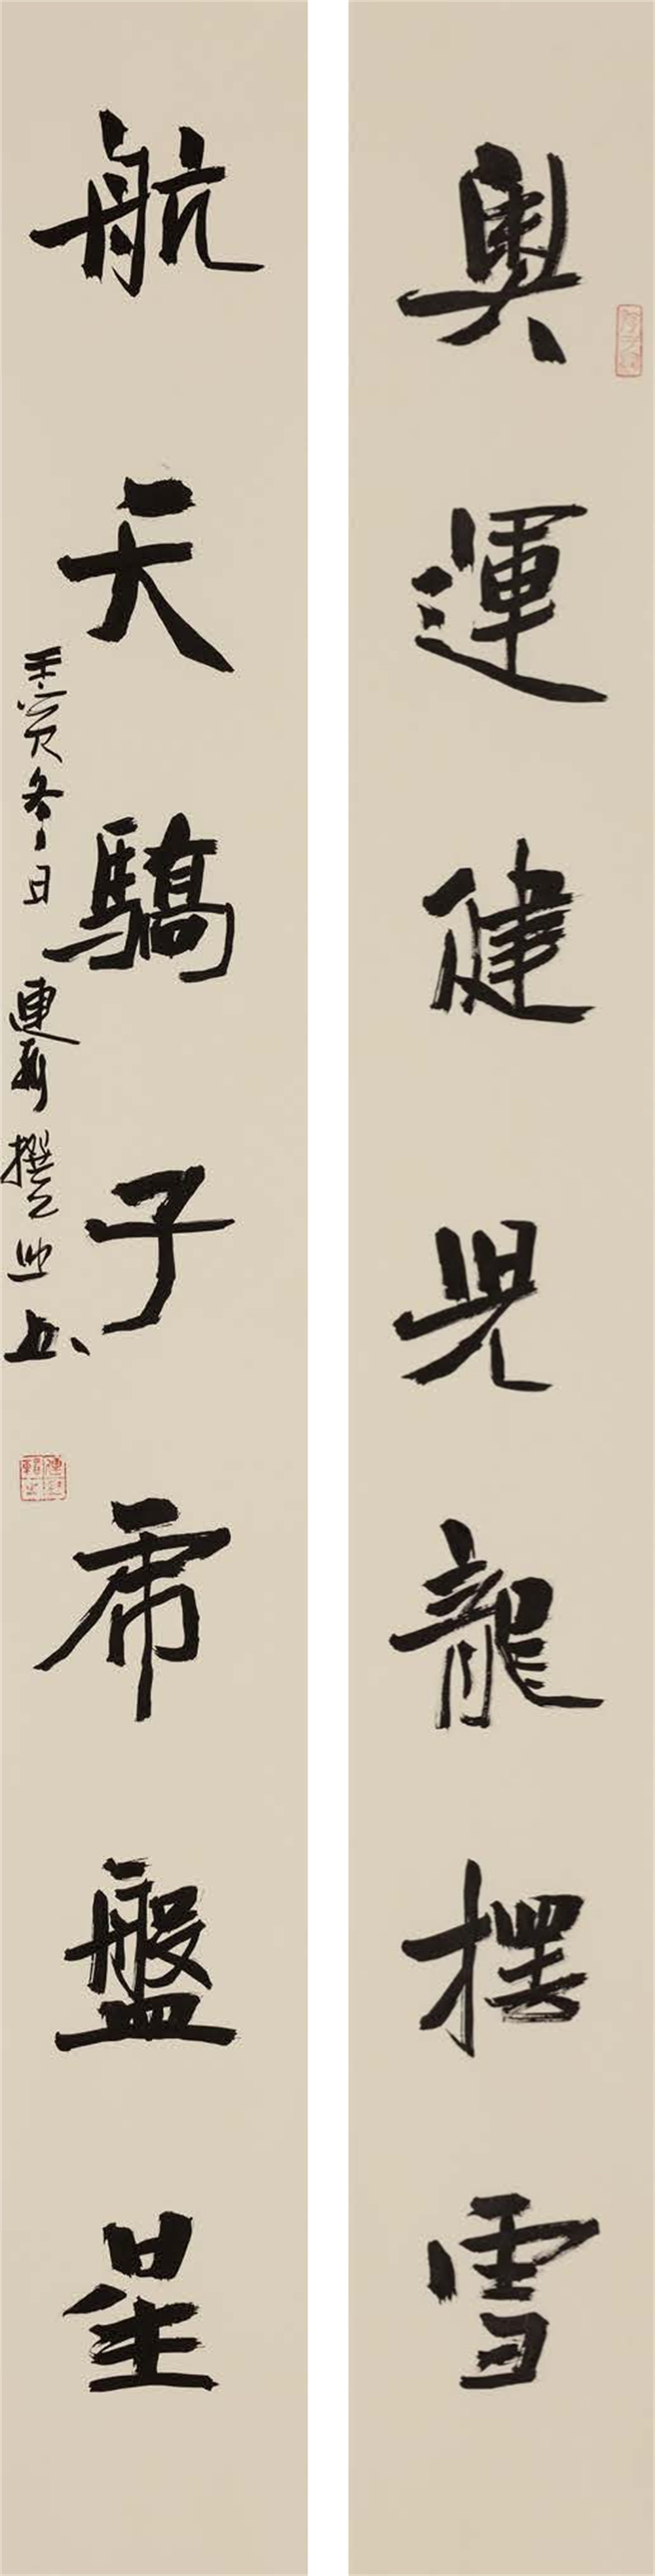 奧運健兒龍擺雪
航天驕子虎盤星
壬寅冬日 連新撰句 書